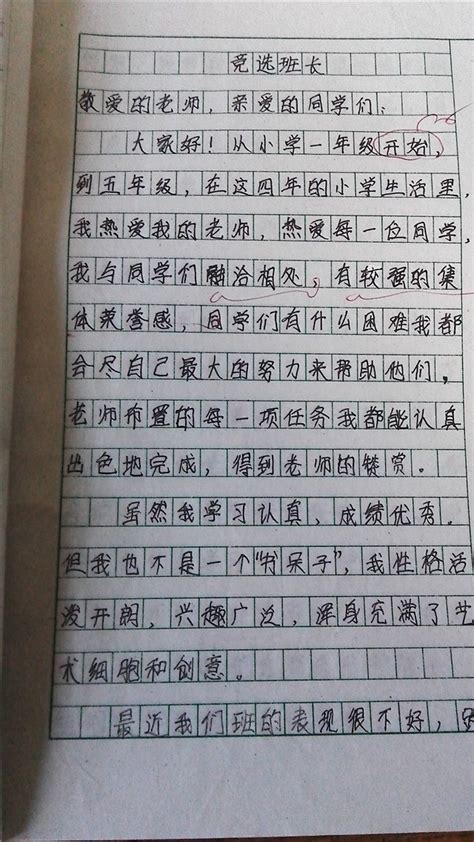 竞选班长
敬爱的老师，亲爱的同学们：
大家好！从小学一年级开始，
到五年级，在这四年的小学生活里，
我热爱我的老师，热爱每一位同学，
我与同学们融洽相处，有较强的集
体荣誉感，同学们有什么困难我都
会尽自己最大的努力来帮助他们，
老师布置的每一项任务我都能认真
出色地完成，得到老师的赞赏。
虽然我学习认真，成绩优秀。
但我也不是一个“书呆子”，我性格活
泼开朗，兴趣广泛，浑身充满了艺
术细胞和创意。
最近我们班的表现很不好，